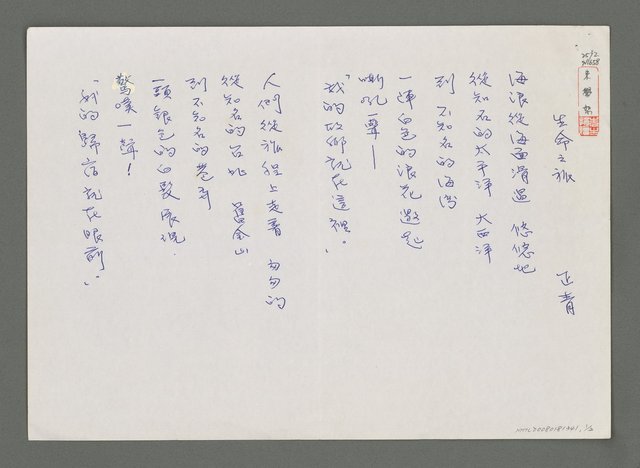 生命之旅
正青
海浪從海面滑過 悠悠地
從知名的太平洋 大西洋
到不知名的海灣
一陣白色的浪花激起
嘶吼一聲—
“我的故鄉就在這裡。”
人們從旅程上走著 匆匆的
從知名的台北 舊金山
到不知名的巷弄
一頭銀色的白髮
驚嘆一聲！
“我的歸宿就在眼前。”
NMTL20080181261, 1/2